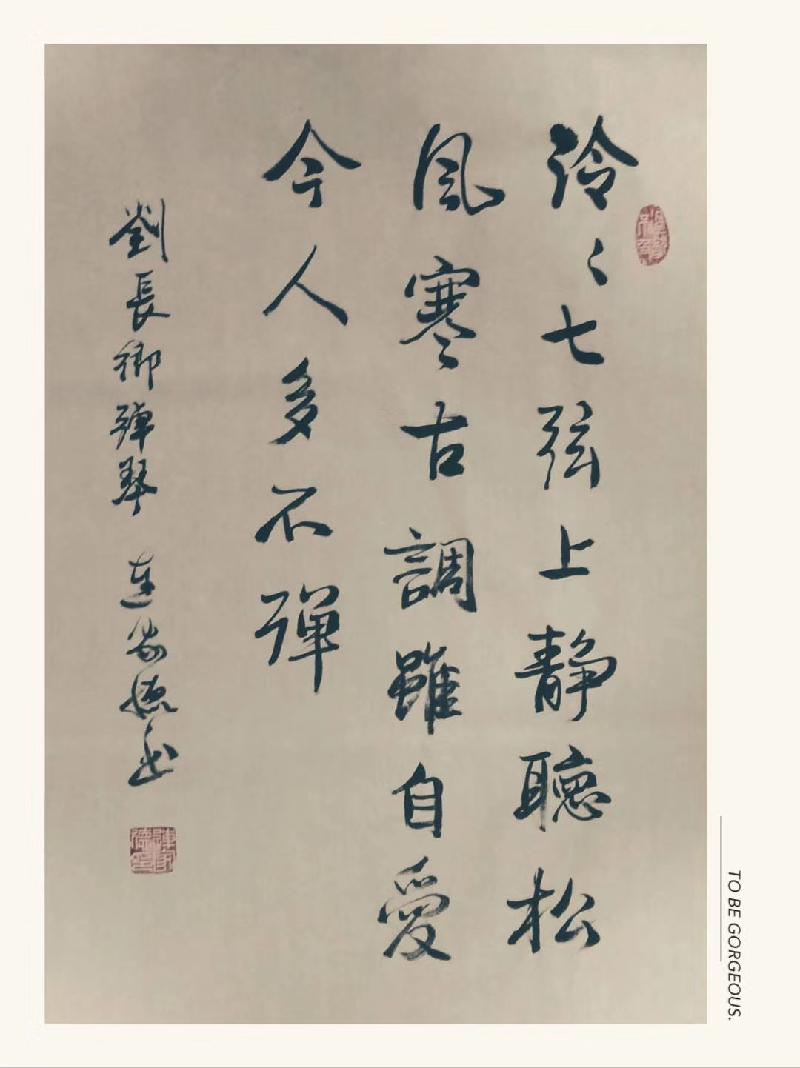 泠〻七弦上静聽松
風寒古調雖自愛
今人多不彈
劉長卿彈琴
TO BE GORGEOUS.